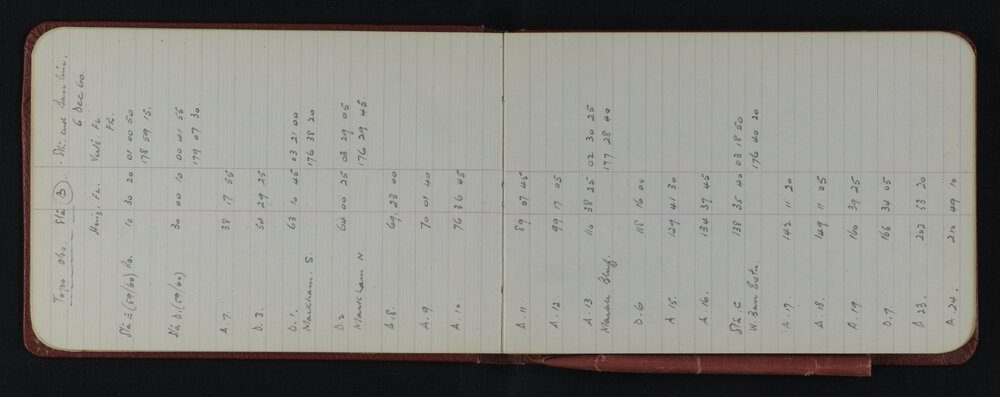 Topo obs. Stn (B) - Stn. and Base line.
6 Dec 60.
Horiz. FL. Vert. FL
FR.
Stn A (59/60) Ro. 10 30 20 01 00 50
178 59 15.
Stn D. (59/60) 30 00 10 00 41 55
179 07 30.
A. 7. 38 17 55
D. 3. 54 29 25
D. 1. 63 10 45 03 21 00
Markham. S. 176 38 20
D. 2 64 00 25 03 29 05
Markham N 176 29 45.
A. 8. 69. 23 00
A. 9. 70 01 40
A. 10. 76 36 45
A. 11. 89 07 45
A. 12 99 17 05
A. 13 110 38 25 02 30 25
Bluff. 177 28 40
D. 6 118 16 00
A 15. 129 41 30
A 16. 134 37 45
Stn C 138 35 40 03 18 50
W. Base Extn. 176 40 20
A. 17. 142 11 20
A. 18. 149 11 05
A. 19 160 39 25
D. 7 166 34 05
A. 23. 202 53 20
A. 24. 210 49 10